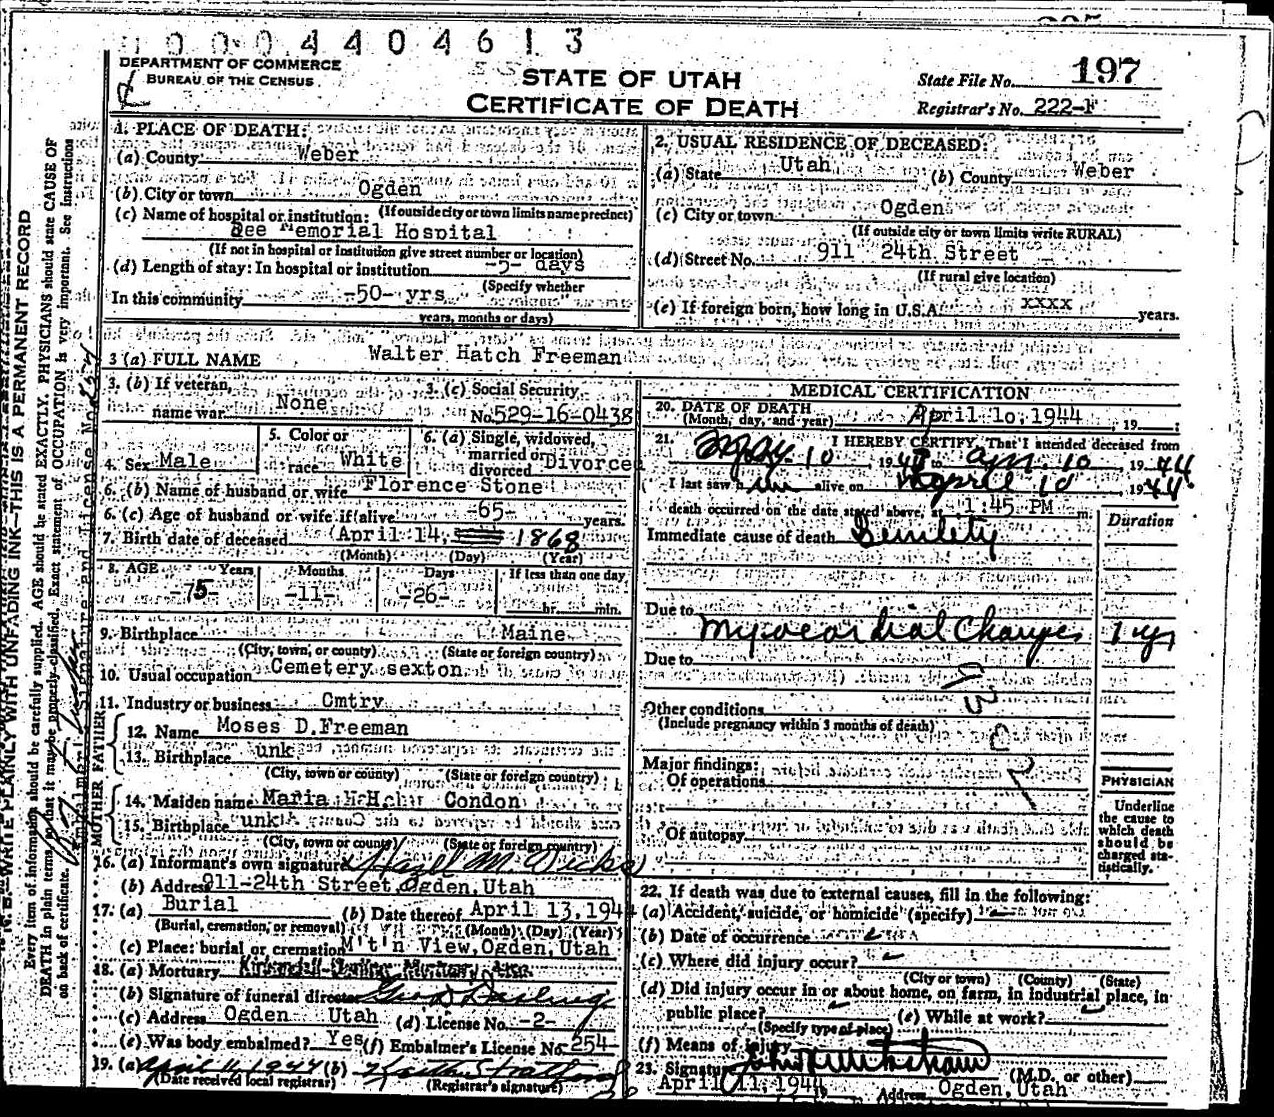 0 0 0 4 4 0 4 6 1 3
DEPARTMENT OF COMMERCE
BUREAU OF THE CENSUS
STATE OF UTAH
CERTIFICATE OF DEATH
State File No. 197
Registrar's No. 222-F
1. PLACE OF DEATH:
(a) County Weber
(b) City or town Ogden
(c) Name of hospital or institution: (If outside city or town limits name precinct)
Dee Memorial Hospital
(If not in hospital or institution give street number or location)
(d) Length of stay: In hospital or institution -5- days
(Specify whether
In this community -50- yrs
years, months or days)
2. USUAL RESIDENCE OF DECEASED:
(a) State Utah (b) County Weber
(c) City or town Ogden
(If outside city or town limits write RURAL)
(d) Street No. 911 24th Street
(If rural give location)
(e) If foreign born, how long in U.S.A. xxxx years.
3 (a) FULL NAME Walter Hatch Freeman
3. (b) If veteran, name war None
3. (c) Social Security No. 529-16-0438
4. Sex Male
5. Color or race White
6. (a) Single, widowed, married or divorced Divorced
6. (b) Name of husband or wife Florence Stone
6. (c) Age of husband or wife if alive -65- years.
7. Birth date of deceased April 14, 1868
(Month) (Day) (Year)
8. AGE Years Months Days If less than one day
-75- -11- -26- hr. min.
9. Birthplace Maine
(City, town, or county) (State or foreign country)
10. Usual occupation Cemetery sexton
11. Industry or business Cmtry
FATHER
12. Name Moses D. Freeman
13. Birthplace unk
(City, town or county) (State or foreign country)
MOTHER
14. Maiden name Maria Condon
15. Birthplace unk
(City, town or county) (State or foreign country)
16. (a) Informant's own signature Hazel M.
(b) Address 911-24th Street, Ogden, Utah
17. (a) Burial (b) Date thereof April 13, 1944
(Burial, cremation, or removal) (Month) (Day) (Year)
(c) Place: burial or cremation M't'n View, Ogden, Utah
18. (a) Mortuary
(b) Signature of funeral director
(c) Address Ogden Utah (d) License No. -2-
(e) Was body embalmed? Yes (f) Embalmer's License No. 254
19. (a) April 11, 1944 (b)
(Date received local registrar) (Registrar's signature)
MEDICAL CERTIFICATION
20. DATE OF DEATH
(Month, day, and year) April 10, 1944, 19
21. I HEREBY CERTIFY, That I attended deceased from
10 19 to Apr. 10, 1944
I last saw him alive on April 10 1944
death occurred on the date stated above, at 1:45 PM m.
Duration
Immediate cause of death Senility
Due to
Myocardial Changes 1 yr
Due to
Other conditions
(Include pregnancy within 3 months of death)
Major findings:
Of operations
Of autopsy
PHYSICIAN
Underline
the cause to
which death
should be
charged sta-
tistically.
22. If death was due to external causes, fill in the following:
(a) Accident, suicide, or homicide (specify)
(b) Date of occurrence
(c) Where did injury occur?
(City or town) (County) (State)
(d) Did injury occur in or about home, on farm, in industrial place, in
public place? (e) While at work?
(Specify type of place)
(f) Means of injury
23. Signature (M.D. or other)
April 11, 1944 Address Ogden, Utah
WRITE PLAINLY WITH UNFADING INK—THIS IS A PERMANENT RECORD
Every item of information should be carefully supplied. AGE should be stated EXACTLY. PHYSICIANS should state CAUSE OF
DEATH in plain terms, so that it may be properly classified. Exact statement of OCCUPATION is very important. See instructions
on back of certificate.